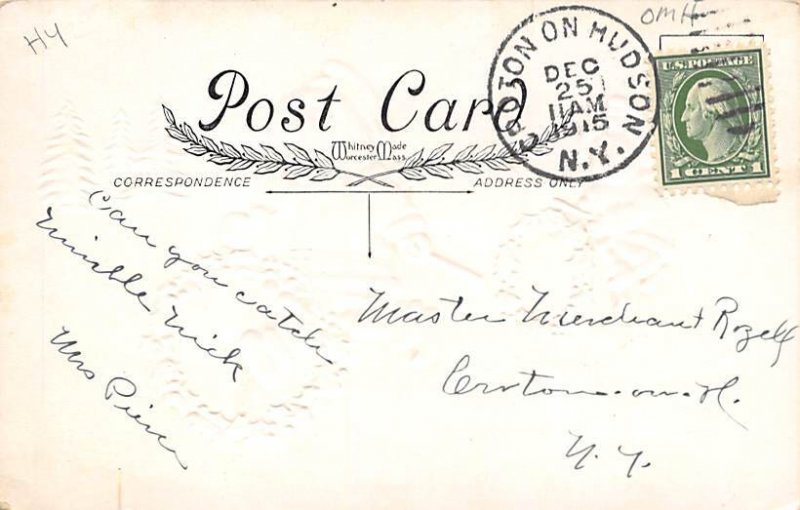 H4
OMH
Post Card
Whitney Made
Worcester Mass
CORRESPONDENCE
ADDRESS ONLY
CROTON ON HUDSON
DEC
25
11 AM
1915
N.Y.
U.S. POSTAGE
1 CENT 1
Can you catch
nimble Nick
Mrs Pierce
Master Merchant Rozell
Croton-on-H.
N.Y.